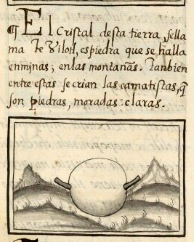 ¶ El cristal desta tierra, sella
ma Te vilotl, es piedra que se halla
en minas, en las montañas. Tambien
entre estas se crian las camatistas, q̃
son piedras, moradas: claras.